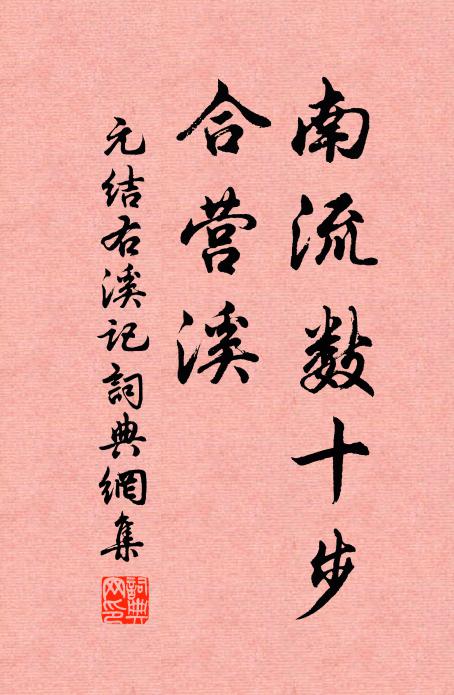 南流数十步
合营溪
元结右溪记詞典網集
詞典網印